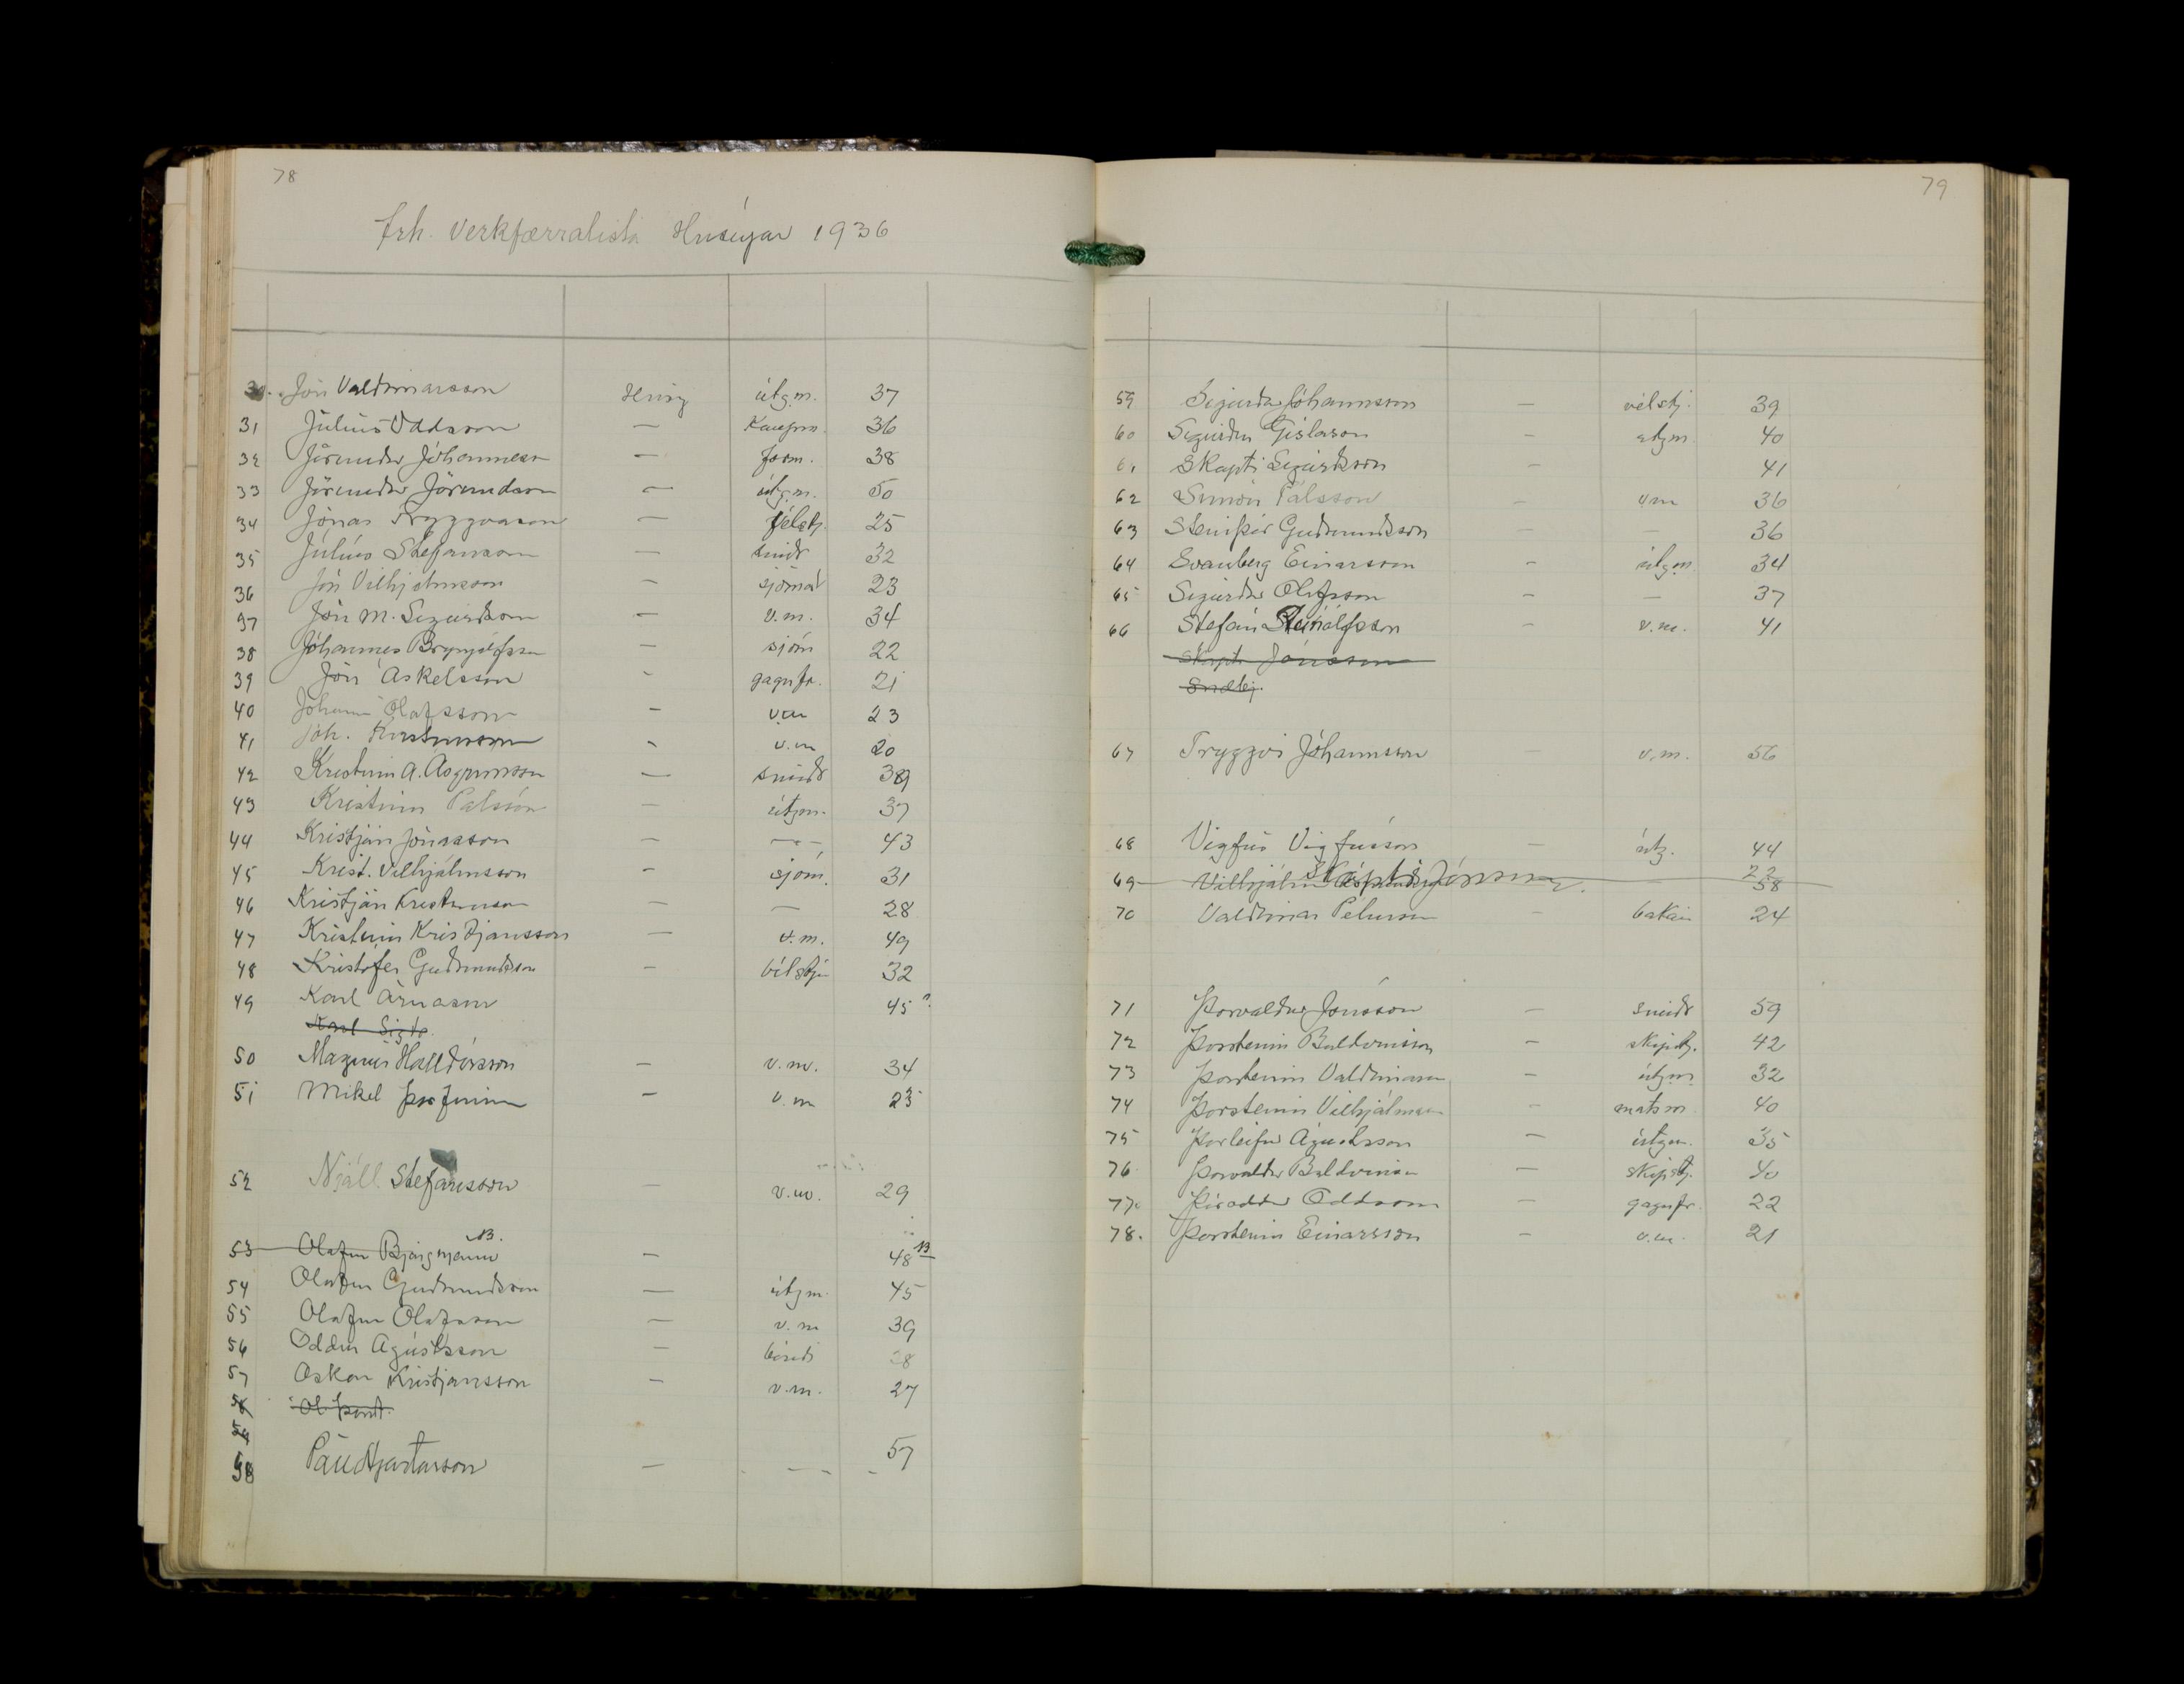 78
frh. Verkfærralista Hríseyjar 1936
30. Jón Valdimarsson Hrísey útg.m. 37
31 Júlíus Oddsson — Kaupm. 36
32 Jörundur Jóhannesson — form. 38
33 Jörundur Jörundsson — útg.m. 50
34 Jónas Tryggvason — vélstj. 25
35 Júlíus Stefánsson — smiðr 32
36 Jón Vilhjalmsson — sjómaðr 23
37 Jón M. Sigurdsson — v.m. 34
38 Jóhannes Brynjólfsson — sjóm 22
39 Jón Áskelsson - gagnfr. 21
40 Jóhann Ólafsson — v.m 23
41 Jóh. Kristinsson - v.m 20
42 Kristinn A. Ásgrímsson — smiðr 39
43 Kristinn Palsson — útgm. 37
44 Kristján Jónasson — --- 43
45 Krist. Vilhjálmsson - sjóm. 31
46 Kristján Kristinsson — — 28
47 Kristinn Kristjansson — v.m. 49
48 Kristófer Gudmundsson - bílstjr 32
49 Karl Árnason 45?
Karl Sigtr.
50 Magnús Halldórsson — v.m. 34
51 Mikel Þorfinns — v.m 23
52 Njáll Stefánsson — v.m. 29
53 Olafur Bjargmann B. — 48 B
54 Olafur Gudmundsson — útgm. 45
55 Olafur Olafsson — v.m 39
56 Oddur Agústsson — bóndi 28
57 Oskar Kristjansson — v.m. 27
58 Ol. Þorst.
59
58 Páll Hjartarson — - -- - 57
79
59 Sigurdur Jóhannsson — vélstj. 39
60 Sigurdur Gíslason - útgm. 40
61 Skapti Sigurdsson - 41
62 Símón Pálsson - v.m 36
63 Steinþór Gudmundsson — — 36
64 Svanberg Einarsson - útgm 34
65 Sigurdur Ólafsson - — 37
66 Stefán Steinólfsson - v.m. 41
Skapti Jónsson
Snæbj.
67 Tryggvi Jóhannsson — v.m. 56
68 Vigfús Vigfússon — útg. 44
69 Vilhjálmur Skapti Jónsson. — 22 58
70 Valdimar Pétursson - bakari 24
71 Þorvaldur Jónsson — smiðr 59
72 Þorsteinn Baldvinsson — skipstj. 42
73 Þorsteinn Valdimarsson — útgm 32
74 Þorsteinn Vilhjálmsson - matsm. 40
75 Þorleifur Águstsson — útgm. 35
76 Þorvaldur Baldvinsson — skipstj. 40
77. Þóroddur Oddsson — gagnfr. 22
78. Þorsteinn Einarsson - v.m. 21